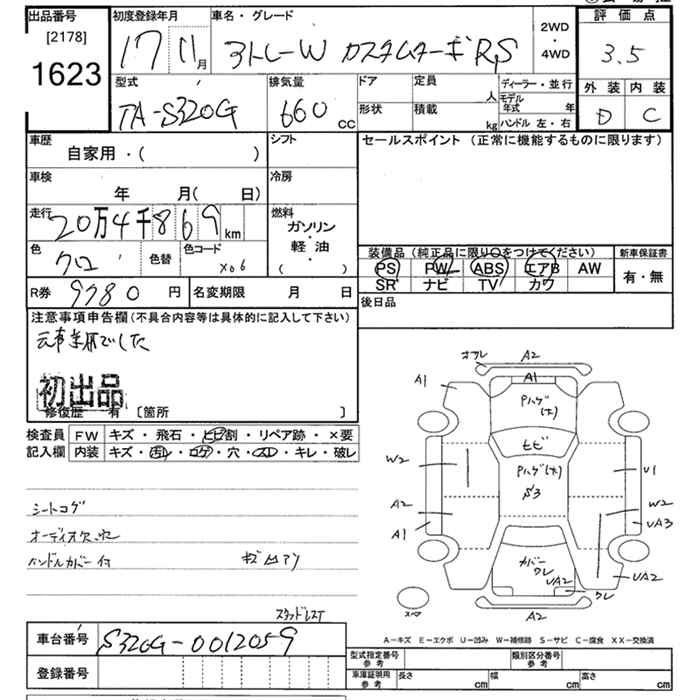 出品番号 初度登録年月 車名・グレード 2WD 評価点
[2178] 17 11月 ・
1623 カスタムターボRS 4WD 3.5
型式 排気量 ドア 定員 人 ディーラー・並行 外装 内装
TA-S320G 660 cc 形状 積載 kg モデル年式 年 D C
ハンドル 左・右
車歴 シフト セールスポイント (正常に機能するものに限ります)
自家用・( )
車検 冷房
年 月( 日)
走行 20万4千869 km 燃料
ガソリン
・
軽・油
( )
色 クロ 色替 色コード X06
装備品 (純正品に限り○をつけてください) 新車保証書
PS PW ABS エアB AW 有・無
SR ナビ TV カワ
R券 9780 円 名変期限 月 日 後日品
注意事項申告欄(不具合内容等は具体的に記入して下さい)
初出品
修復歴 有 [箇所 ]
検査員 FW キズ・飛石・ヒビ割・リペア跡・×要
記入欄 内装 キズ・汚レ・コゲ・穴・スレ・キレ・破レ
シートコゲ
オーディオ欠
ハンドルカバー付 キズ凹アリ
スタッドレスT
A2
A1 A1
Pハゲ(大)
ヒビ
W2 Pハゲ(大) U1
A2 W2
A1 UA3
カバー
ワレ UA2 UA2
ワレ
スペア A2
A-キズ E-エクボ U-凹み W-補修跡 S-サビ C-腐食 XX-交換済
車台番号 S320G-0012059 型式指定番号 参考 類別区分番号 参考
登録番号 車庫証明用 参考 長さ cm 幅 cm 高さ cm